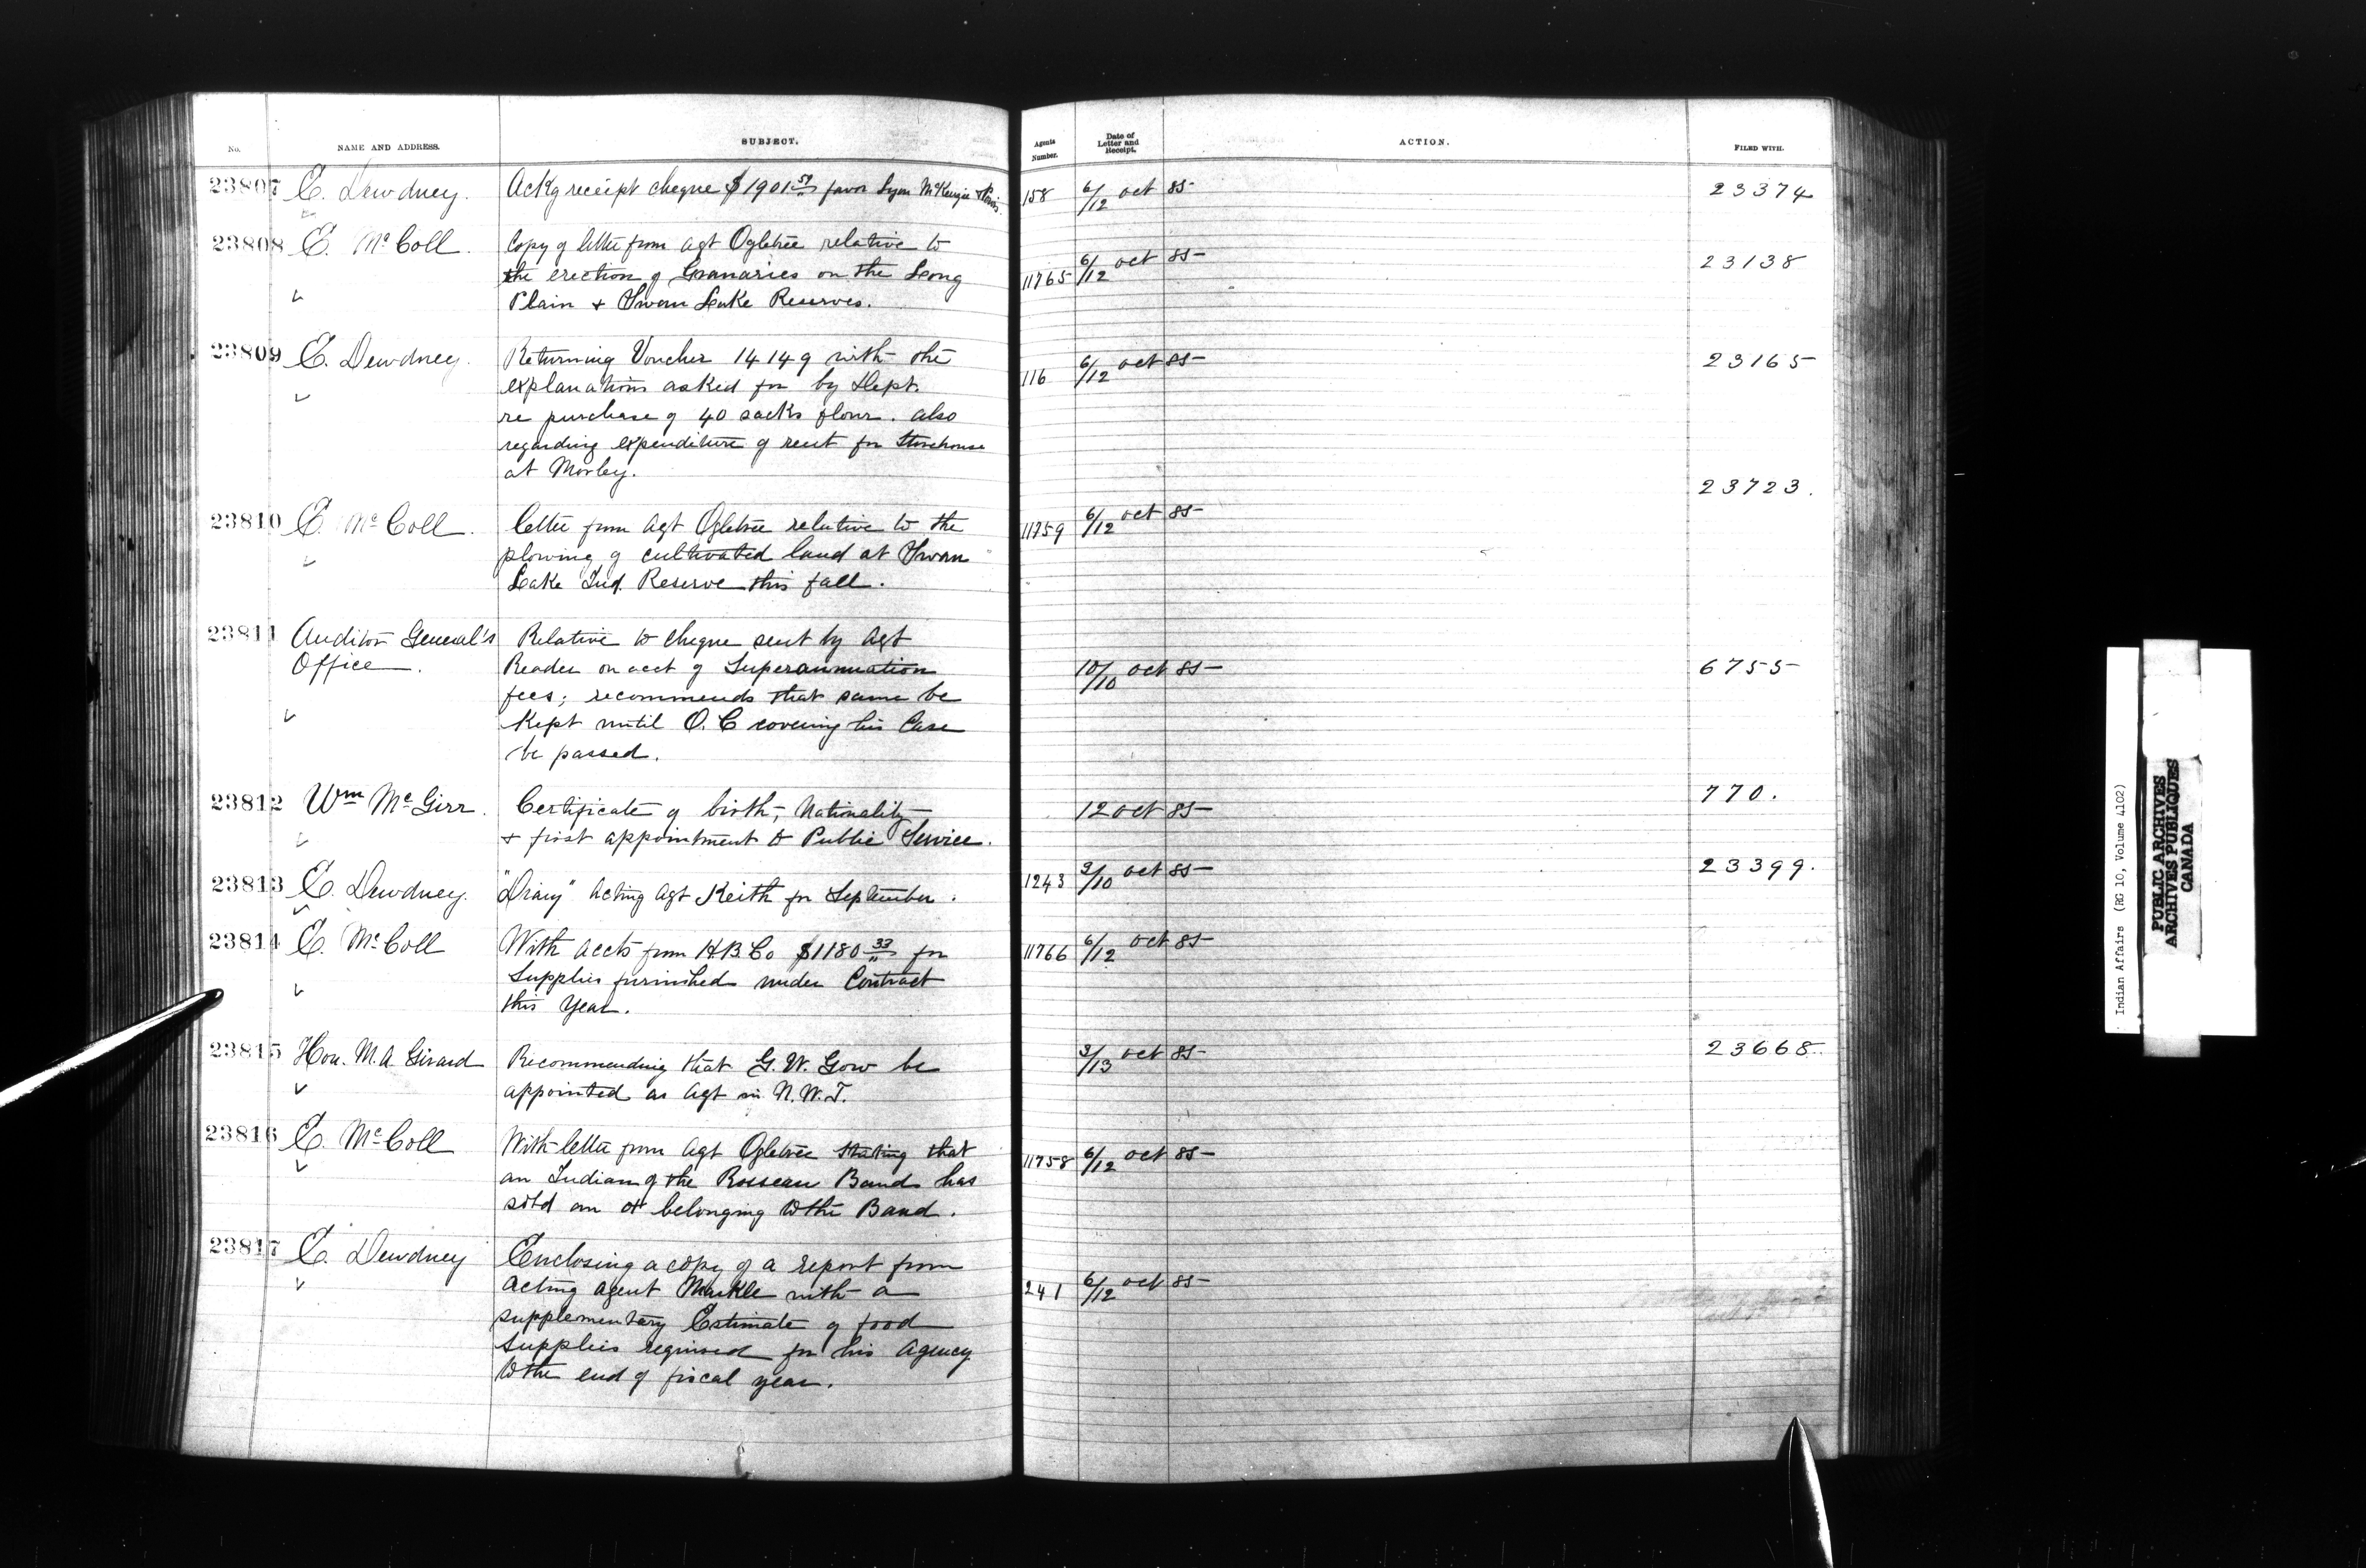 No. NAME AND ADDRESS. SUBJECT. Agents Number. Date of Letter and Receipt. ACTION. FILED WITH.
23807 E. Dewdney. Ackg receipt cheque $1901 51 favor Lyon McKenzie & Powis. 158 6/12 oct 85 23374
23808 E. McColl. Copy of letter from Agt Ogletree relative to 11765 6/12 oct 85 23138
the erection of Granaries on the Long
Plain & Swan Lake Reserves.
23809 E. Dewdney. Returning Voucher 14149 with the 116 6/12 oct 85 23165
explanations asked for by Dept.
re purchase of 40 sacks flour. also
regarding expenditure of rent for Storehouse
at Morley.
23723.
23810 E. McColl. Letter from Agt Ogletree relative to the 11759 6/12 oct 85
plowing of cultivated land at Swan
Lake Ind. Reserve this fall.
23811 Auditor General's Relative to cheque sent by Agt
Office. Reader on acct of Superannuation 10/10 oct 85 6755
fees; recommends that same be
kept until O.C covering his Case
be passed.
23812 Wm McGirr. Certificate of birth, Nationality 12 oct 85 770.
& first appointment to Public Service.
23813 E. Dewdney. "Diary" Acting Agt Keith for September. 1243 3/10 oct 85 23399.
23814 E. McColl With accts from H.B.Co $1180 33 for 11766 6/12 oct 85
Supplies furnished under Contract
this Year.
23815 Hon. M.A. Girard Recommending that G.W. Gow be 3/13 oct 85 23668.
appointed as Agt in N.W.T.
23816 E. McColl With letter from Agt Ogletree stating that 11758 6/12 oct 85
an Indian of the Rosseau Band has
sold an ox belonging to the Band.
23817 E. Dewdney Enclosing a copy of a report from
acting agent Markle with a 241 6/12 oct 85
supplementary Estimate of food
supplies required for his Agency
to the end of fiscal year.
Indian Affairs (RG 10, Volume 4102)
PUBLIC ARCHIVES
ARCHIVES PUBLIQUES
CANADA